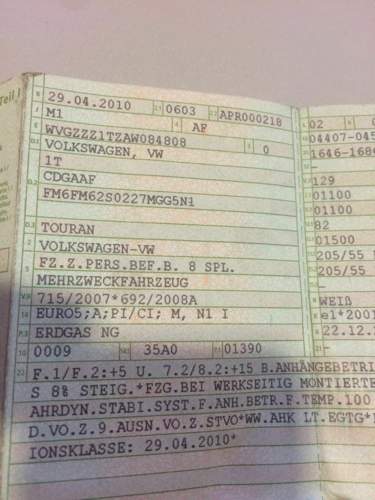 Teil I
B 29.04.2010 2.1 0603 2.2 APR000218
J M1 4 AF
E WVGZZZ1TZAW084808 3 0
D.1 VOLKSWAGEN, VW
1T
D.2 CDGAAF
FM6FM62S0227MGG5N1
D.3 TOURAN
2 VOLKSWAGEN-VW
5 FZ.Z.PERS.BEF.B. 8 SPL.
MEHRZWECKFAHRZEUG
V.9 715/2007*692/2008A
14 EURO5;A;PI/CI; M, N1 I
P.3 ERDGAS NG
10 0009 14.1 35A0 P.1 01390
22 F.1/F.2:+5 U. 7.2/8.2:+15 B.ANHÄNGEBETRI
S 8% STEIG.*FZG.BEI WERKSEITIG MONTIERTE
AHRDYN.STABI.SYST.F.ANH.BETR.F.TEMP.100
D.VO.Z.9.AUSN.VO.Z.STVO*WW.AHK LT.EGTG*
IONSKLASSE: 29.04.2010*
02
04407-045
1646-1686
-
129
01100
01100
82
01500
205/55
205/55
-
WEIß
e1*2001
22.12.
-